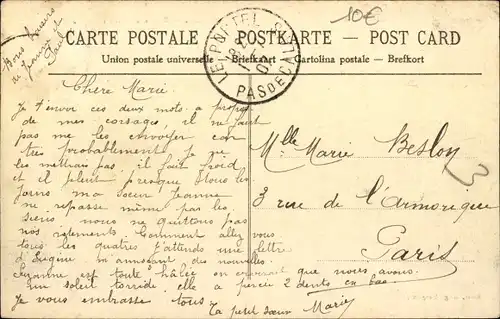 10€
Bons baisers
de Jeanne et
Paul
CARTE POSTALE — POSTKARTE — POST CARD
Union postale universelle Briefkart — Cartolina postale — Brefkort
LE PORTEL
PAS DE CALAIS
07
Chère Marie
Je t'envoi ces deux mots a propos
de mes corsages, il ne faut
pas me les envoyer car
très probablement je ne
les mettrais pas, il fait froid
et il pleut presque tous les
jours ma sœur Jeanne
ne repasse même pas les
siens nous ne quittons pas
nos vêtements. Comment allez vous
tous les quatres j'attends une lettre
d'Eugène lui annonçant des nouvelles.
Suzanne est toute hâlée on croirait que nous avons
un soleil torride, elle a percée 2 dents en bas
Je vous embrasse tous
Ta petite sœur Marie
Mlle Marie Beslon
3 rue de l'Armorique
Paris
3